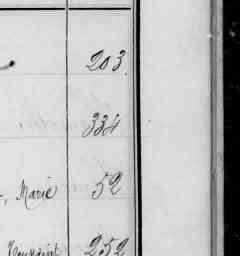 203.
334
, Marie 52
Toussaint 252